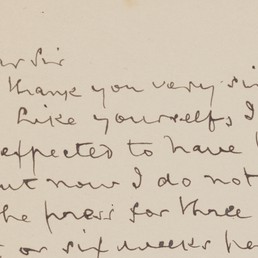 ar Sir
thank you very sin
Like yourself, I
expected to have
but now I do not
the press for three
or six weeks he